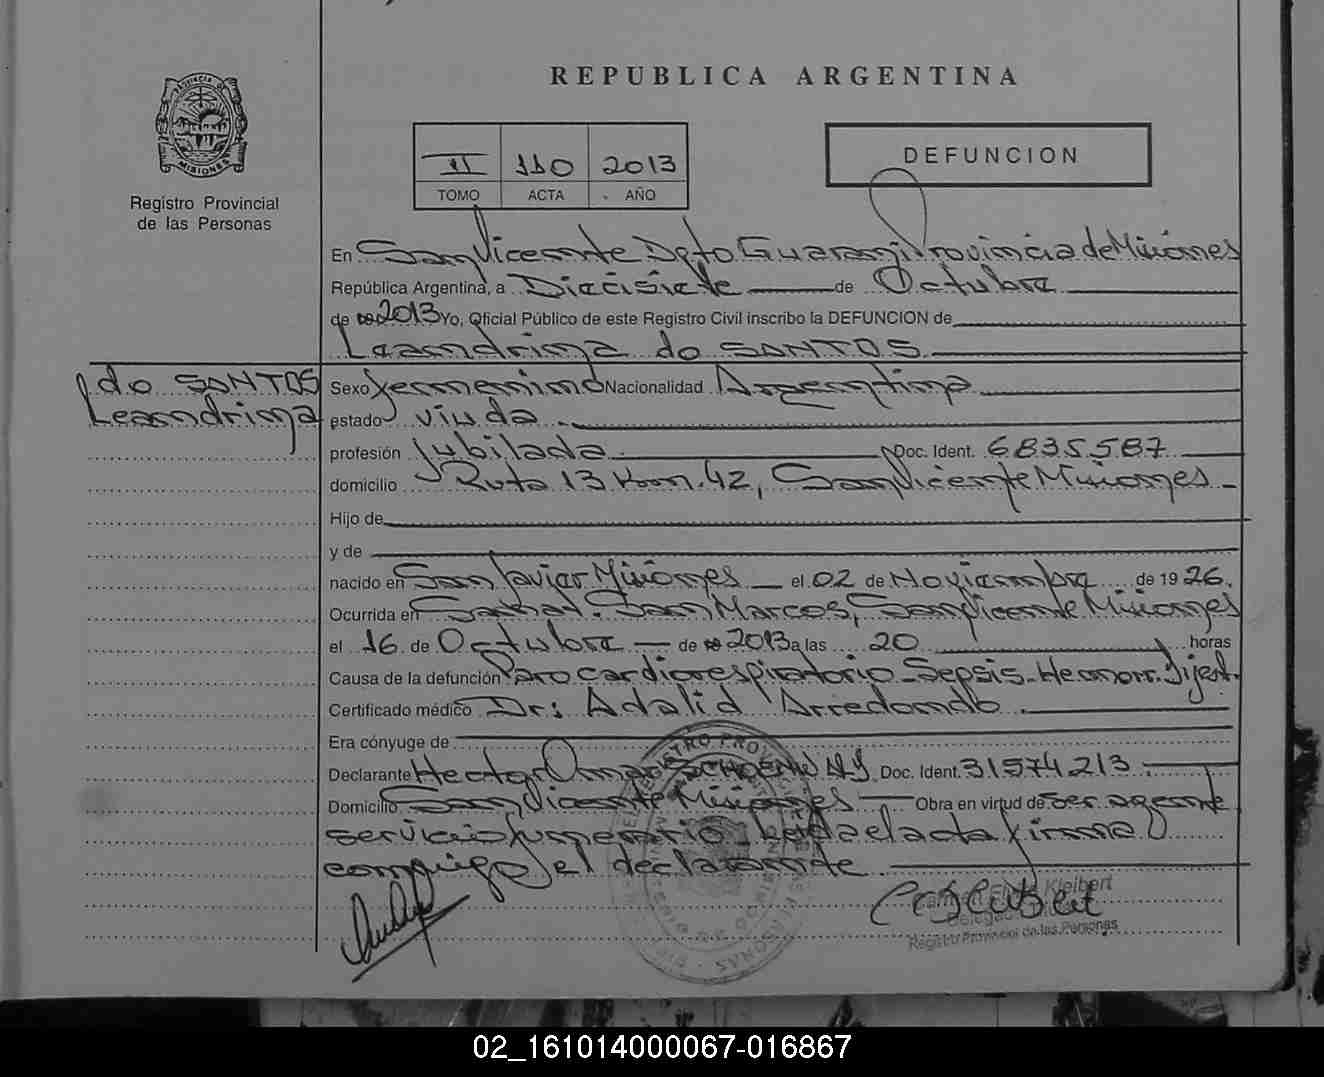 REPUBLICA ARGENTINA
PROVINCIA DE
MISIONES
Registro Provincial
de las Personas
II 110 2013
TOMO ACTA AÑO
DEFUNCION
En San Vicente Dpto Guarani Provincia de Misiones
República Argentina, a Diecisiete de Octubre
de 2013 Yo, Oficial Público de este Registro Civil inscribo la DEFUNCION de
Leandrina do SANTOS
do SANTOS
Leandrina
Sexo femenino Nacionalidad Argentina
estado viuda
profesión Jubilada Doc. Ident. 6835587
domicilio Ruta 13 Km. 42, San Vicente Misiones
Hijo de
y de
nacido en San Javier Misiones el 02 de Noviembre de 1926.
Ocurrida en Sanat. San Marcos, San Vicente Misiones
el 16 de Octubre de 2013 a las 20 horas
Causa de la defunción Paro cardiorespiratorio - Sepsis - Hemorr. Dijest.
Certificado médico Dr: Adalid Arredondo.
Era cónyuge de
Declarante Hector Omar Doc. Ident. 31574213
Domicilio San Vicente Misiones Obra en virtud de ser agente
servicio funerario Leída el acta firma
conmigo el declarante
Kleibert
Registro Provincial de las Personas
02_161014000067-016867